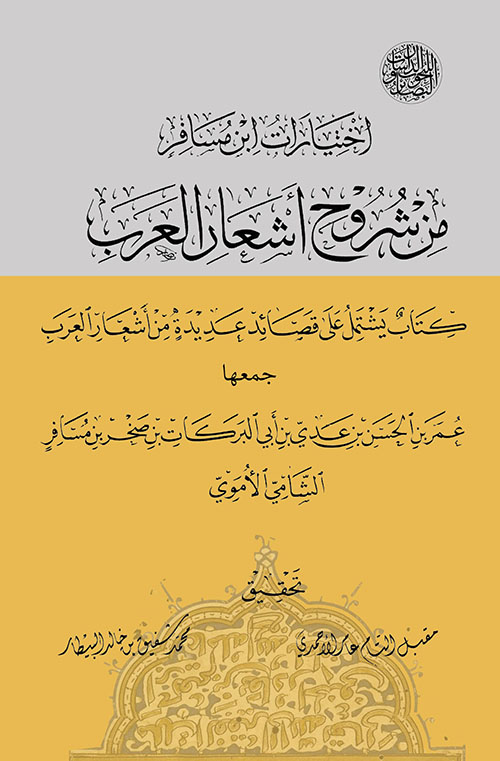 اخْتِيَارَاتُ ابْنِ مُسَافِرٍ
مِنْ شُرُوْحِ أَشْعَارِ العَرَبِ
كِتَابٌ يَشْتَمِلُ عَلَى قَصَائِدَ عَدِيْدَةٍ مِنْ أَشْعَارِ العَرَبِ
جمعها
عُمَرُ بنِ الحَسَنِ بنِ عَدِيِّ بنِ أَبِي البَرَكَاتِ بنِ صَخْرِ بنِ مُسَافِرٍ
الشَّامِيِّ الأُمَوِيِّ
تَحْقِيْق
مقبل التام عامر الأحمدي
محمد شفيق بن خالد البيطار